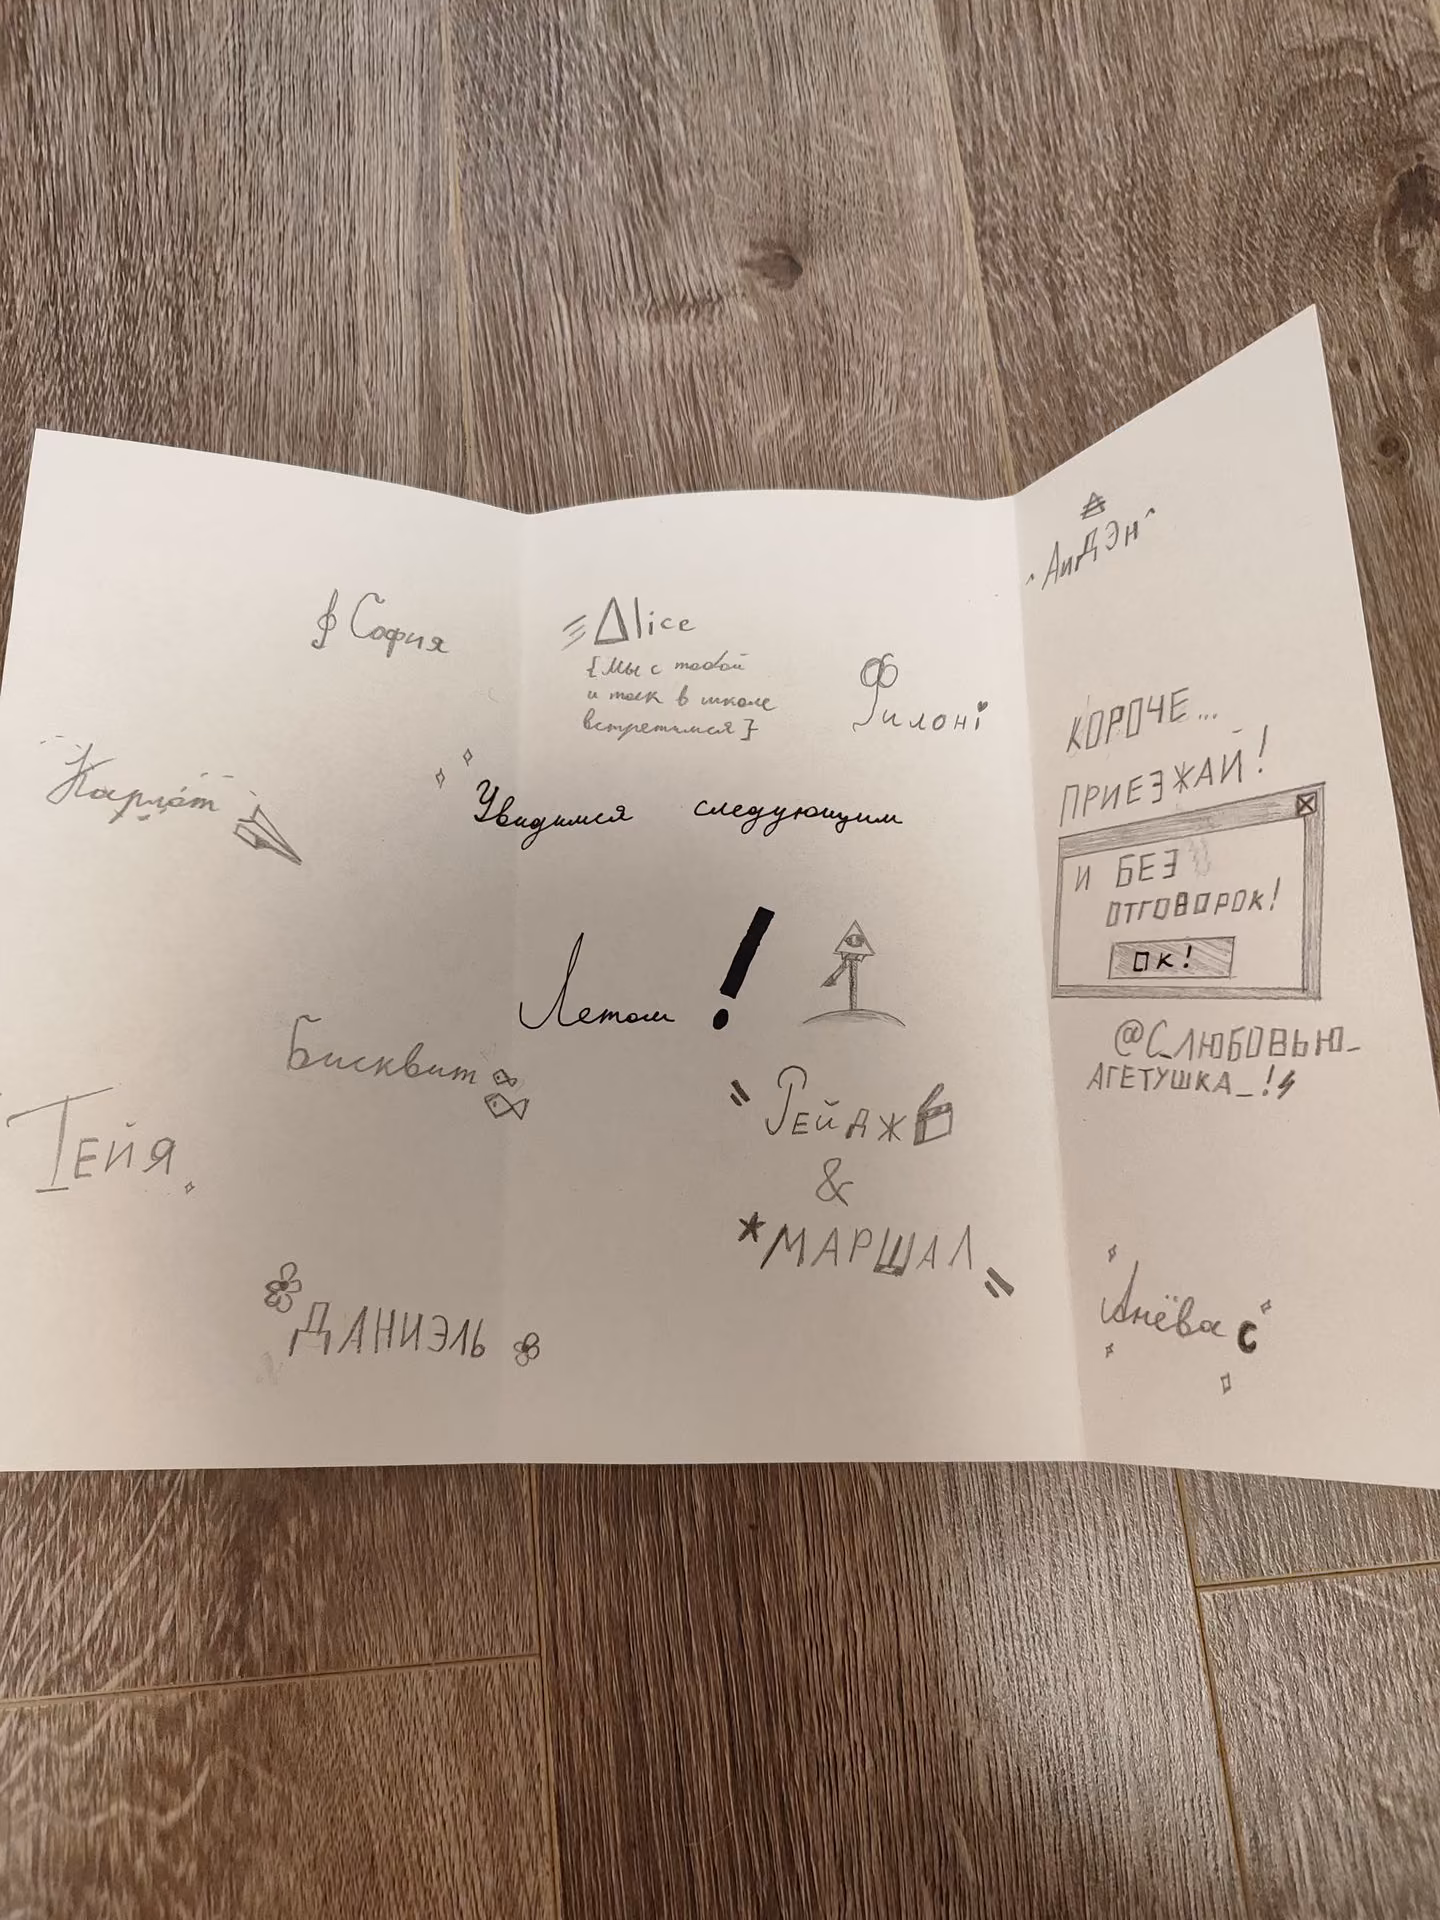 София
Alice
{Мы с тобой
и так в школе
встретимся}
Филоні
АиДЭн
Карлат
Увидимся следующим
Летом !
КОРОЧЕ...
ПРИЕЗЖАЙ!
И БЕЗ
ОТГОВОРОК!
ОК!
@С_ЛЮБОВЬЮ_
АГЕТУШКА_!
Бисквит
ТЕЙЯ
РЕЙДЖ
&
*МАРШАЛ
ДАНИЭЛЬ
Анёва